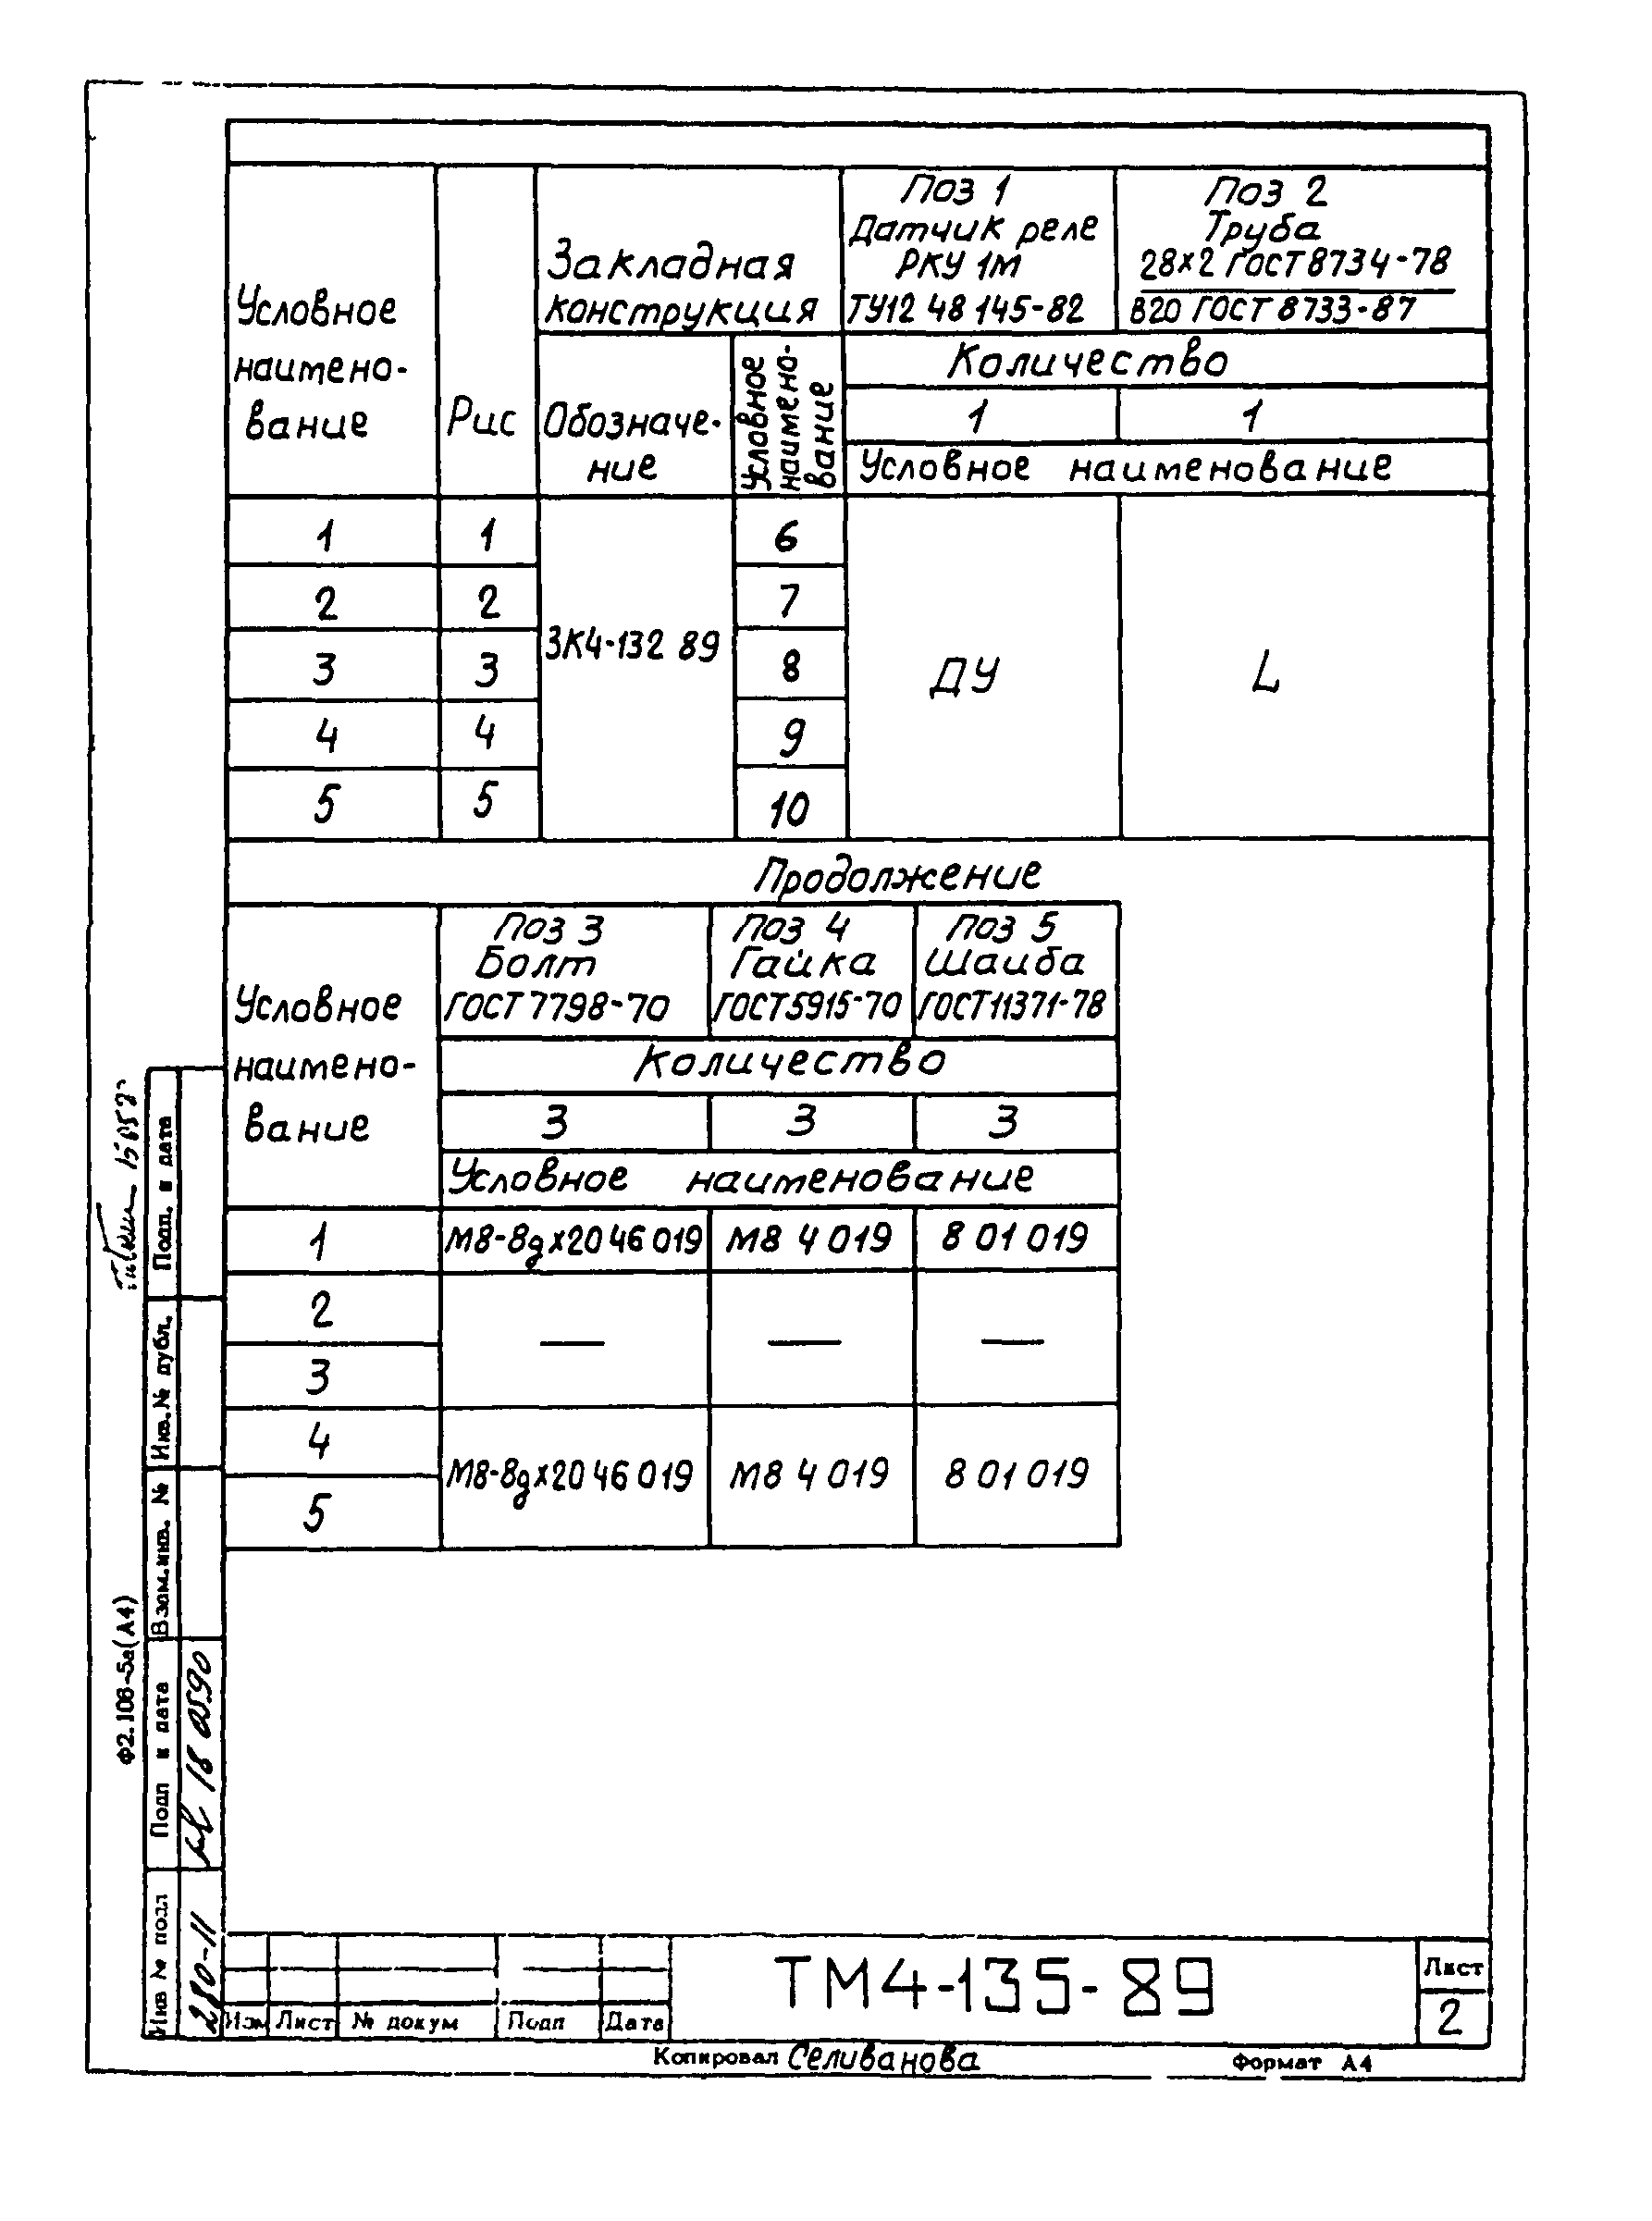 Условное
наимено-
вание
Рис
Закладная
конструкция
Поз 1
Датчик реле
РКУ 1М
ТУ12 48 145-82
Поз 2
Труба
28×2 ГОСТ 8734-78
В20 ГОСТ 8733-87
Обозначе-
ние
Условное
наимено-
вание
Количество
1 1
Условное наименование
1 1 6
2 2 7
ЗК4-132 89
3 3 8
ДУ L
4 4 9
5 5 10
Продолжение
Условное
наимено-
вание
Поз 3
Болт
ГОСТ 7798-70
Поз 4
Гайка
ГОСТ 5915-70
Поз 5
Шаиба
ГОСТ 11371-78
Количество
3 3 3
Условное наименование
1 М8-8g×20 46 019 М8 4 019 8 01 019
2
— — —
3
4
М8-8g×20 46 019 М8 4 019 8 01 019
5
Подп. и дата
Инв.№ дубл.
Взам.инв. №
Подп и дата
18 0590
Инв № подл
280-11
Ф2.106-5а(А4)
Изм Лист № докум Подп Дата
ТМ4-135-89
Лист
2
Копировал Селиванова
Формат А4